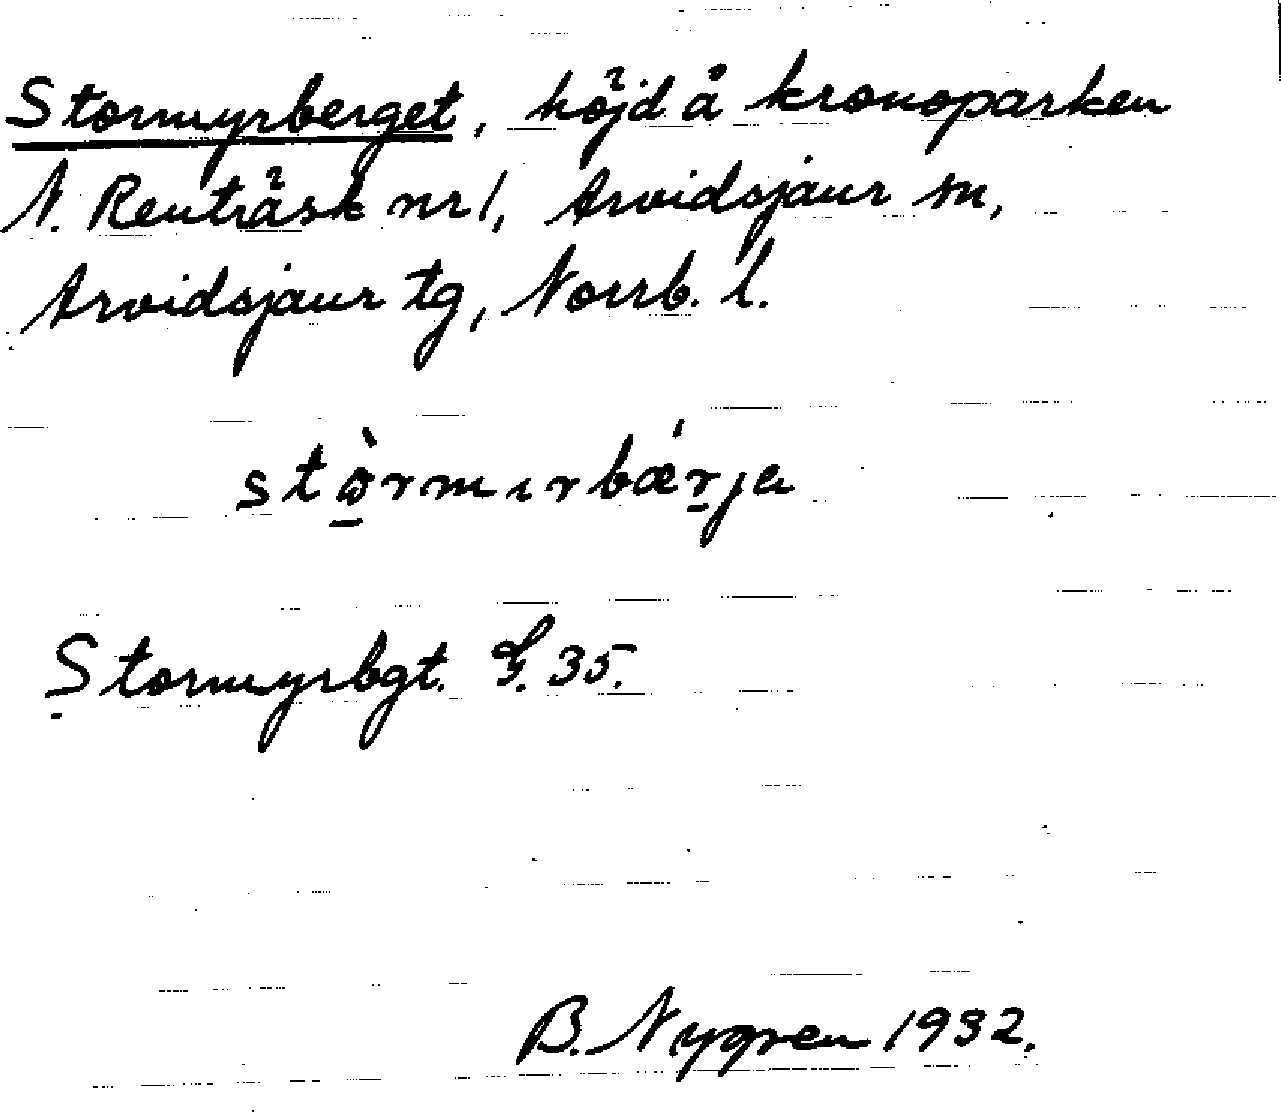 Stormyrberget, höjd å kronoparken
N. Renträsk nr 1, Arvidsjaur sn,
Arvidsjaur tg, Norrb. l.
stò̱rmırbǽṟja
Stormyrbgt. G. 35.
B. Nygren 1932.